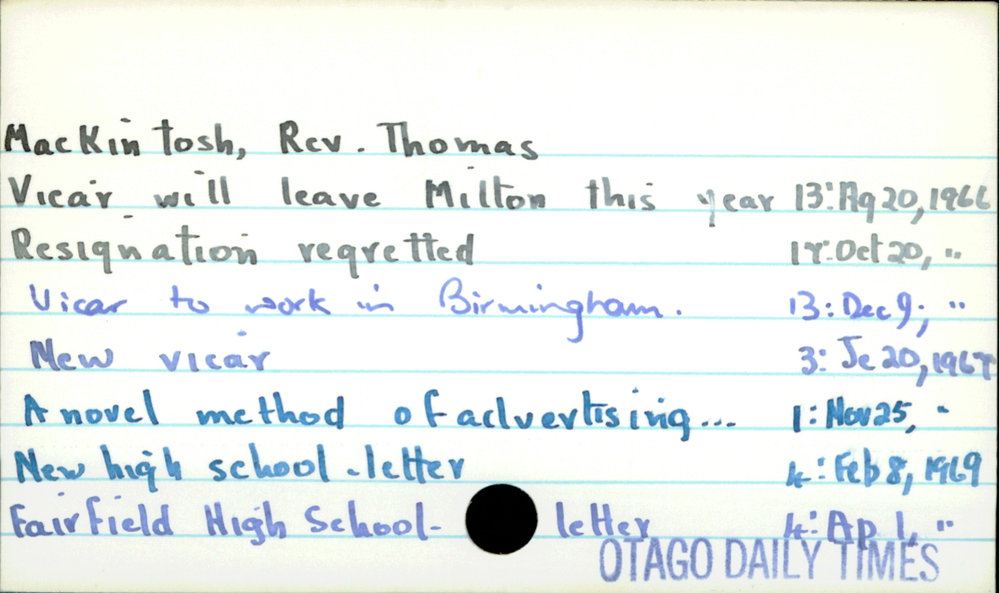 MacKintosh, Rev. Thomas
Vicar will leave Milton this year 13: Ag 20, 1966
Resignation regretted Oct 20, "
Vicar to work in Birmingham. 13: Dec 9, "
New vicar 3: Je 20, 1967
A novel method of advertising... 1: Nov 25, "
New high school - letter 4: Feb 8, 1969
Fairfield High School - letter 4: Ap 1, "
OTAGO DAILY TIMES